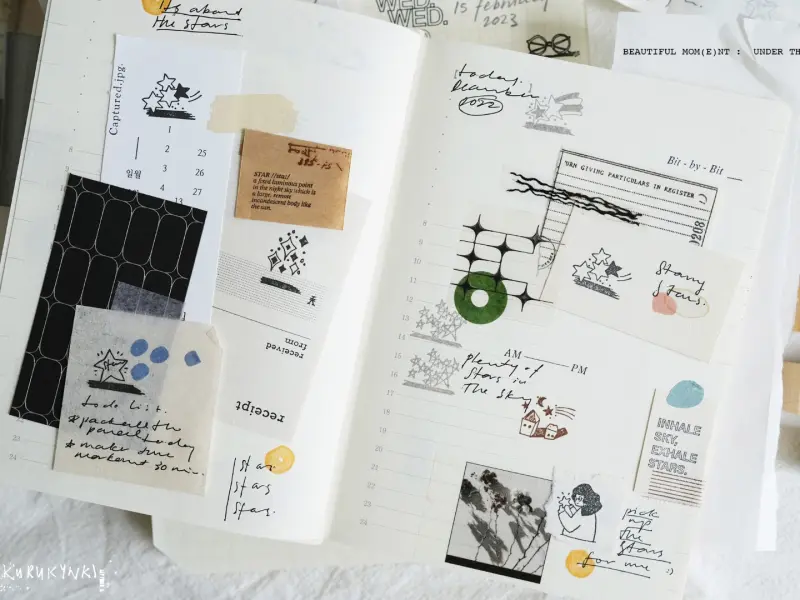 It's about
the stars
WED.
WED.
15 february
2023
BEAUTIFUL MOM(E)NT : UNDER TH
Captured.jpg.
1
2
3
4
25
26
27
13
일월
STAR /stɑː/
a fixed luminous point
in the night sky which is
a large, remote
incandescent body like
the sun.
received
from
receipt
to do list.
* package the
parcel today
* make time
30 min.
star
stars
star.
today.
December
2022
Bit - by - Bit
URN GIVING PARTICULARS IN REGISTER
Starry
Stars.
8
9
10
11
12
13
14
15
16
17
18
19
20
21
22
23
24
AM
PM
Plenty of
Stars in
The Sky
INHALE
SKY,
EXHALE
STARS.
pick
up
the
stars
for me :)
KURUKYNKI